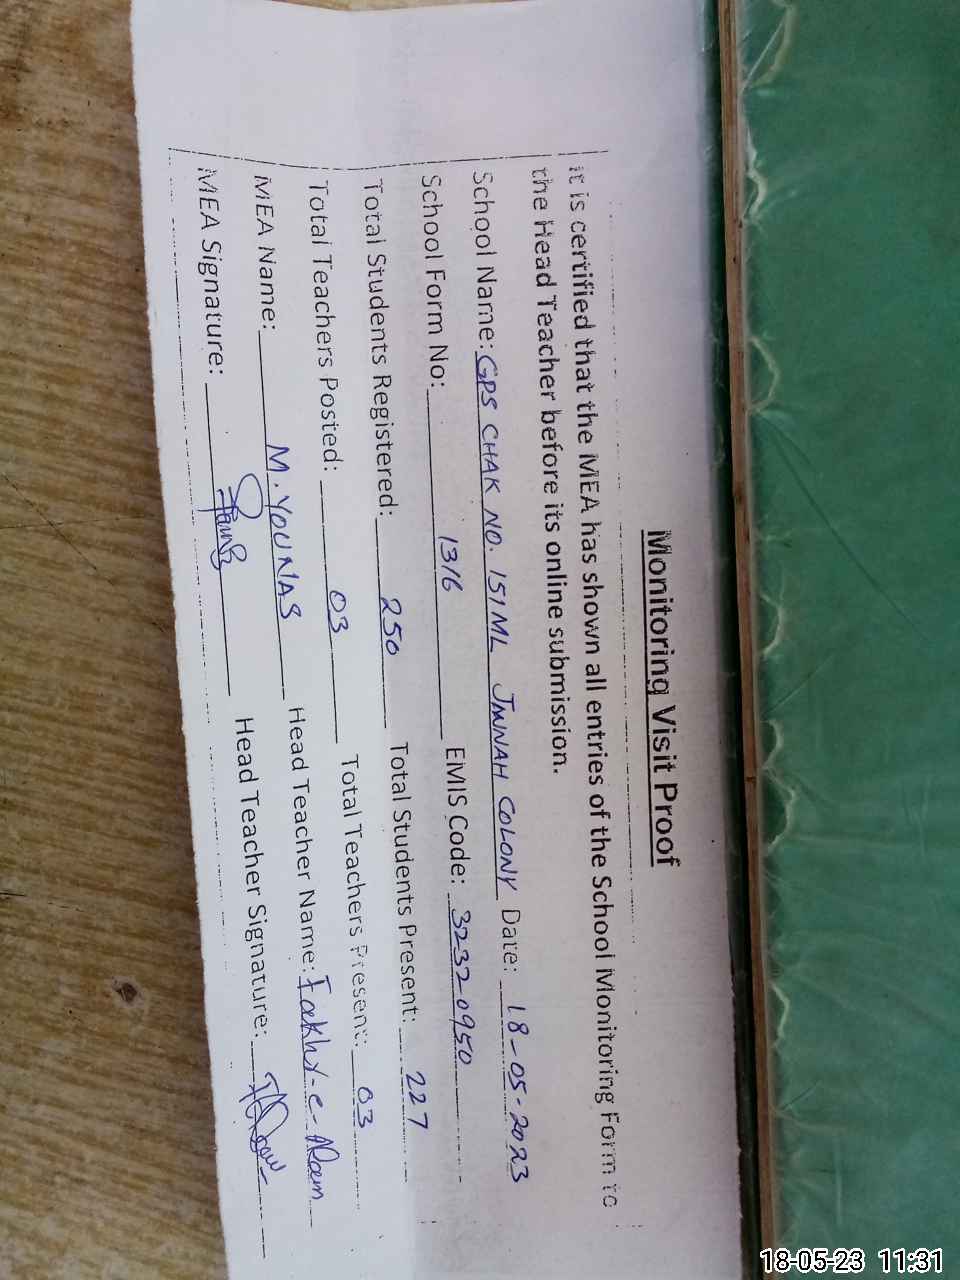 Monitoring Visit Proof
it is certified that the MEA has shown all entries of the School Monitoring Form to
the Head Teacher before its online submission.
School Name: GPS CHAK NO. 151ML JINNAH COLONY Date: 18-05-2023
School Form No: 1316 EMIS Code: 32320950
Total Students Registered: 250 Total Students Present: 227
Total Teachers Posted: 03 Total Teachers Present: 03
MEA Name: M. YOUNAS Head Teacher Name: Fakhr-e-Alam
MEA Signature: Head Teacher Signature:
18-05-23 11:31